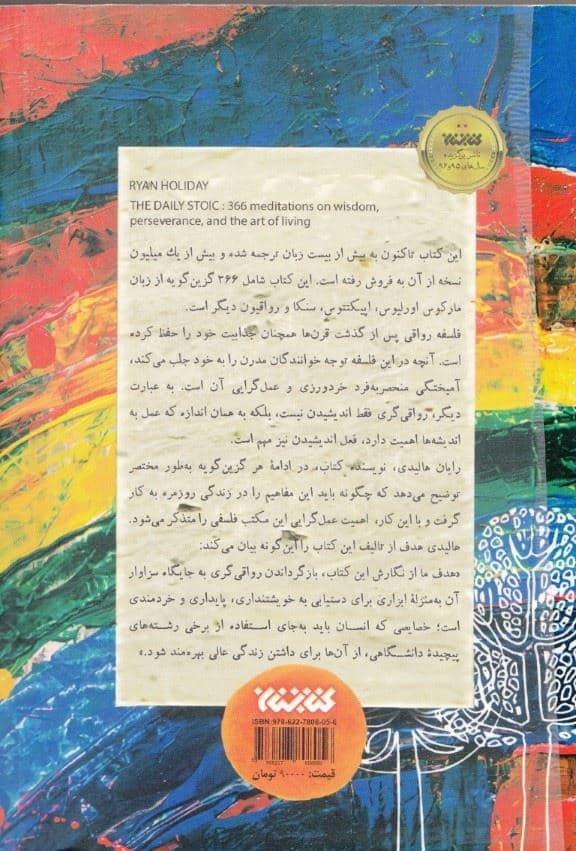 کتیبه‌پارسه
ناشر برگزیده
سال‌های ۹۵ و ۹۶
RYAN HOLIDAY
THE DAILY STOIC : 366 meditations on wisdom,
perseverance, and the art of living
این کتاب تاکنون به بیش از بیست زبان ترجمه شده و بیش از یك میلیون
نسخه از آن به فروش رفته است. این کتاب شامل ۳۶۶ گزین‌گویه از زبان
مارکوس اورلیوس، اپیکتتوس، سنکا و رواقیون دیگر است.
فلسفه رواقی پس از گذشت قرن‌ها همچنان جذابیت خود را حفظ کرده
است. آنچه در این فلسفه توجه خوانندگان مدرن را به خود جلب می‌کند،
آمیختگی منحصربه‌فرد خردورزی و عمل‌گرایی آن است. به عبارت
دیگر، رواقی‌گری فقط اندیشیدن نیست، بلکه به همان اندازه که عمل به
اندیشه‌ها اهمیت دارد، فعل اندیشیدن نیز مهم است.
رایان هالیدی، نویسنده کتاب، در ادامهٔ هر گزین‌گویه به‌طور مختصر
توضیح می‌دهد که چگونه باید این مفاهیم را در زندگی روزمره به کار
گرفت و با این کار، اهمیت عمل‌گرایی این مکتب فلسفی را متذکر می‌شود.
هالیدی هدف از تالیف این کتاب را این‌گونه بیان می‌کند:
«هدف ما از نگارش این کتاب، بازگرداندن رواقی‌گری به جایگاه سزاوار
آن به‌منزلهٔ ابزاری برای دستیابی به خویشتنداری، پایداری و خردمندی
است؛ خصایصی که انسان باید به‌جای استفاده از برخی رشته‌های
پیچیدهٔ دانشگاهی، از آن‌ها برای داشتن زندگی عالی بهره‌مند شود.»
ISBN: 978-622-7808-05-6
قیمت: ۹۰۰۰۰ تومان